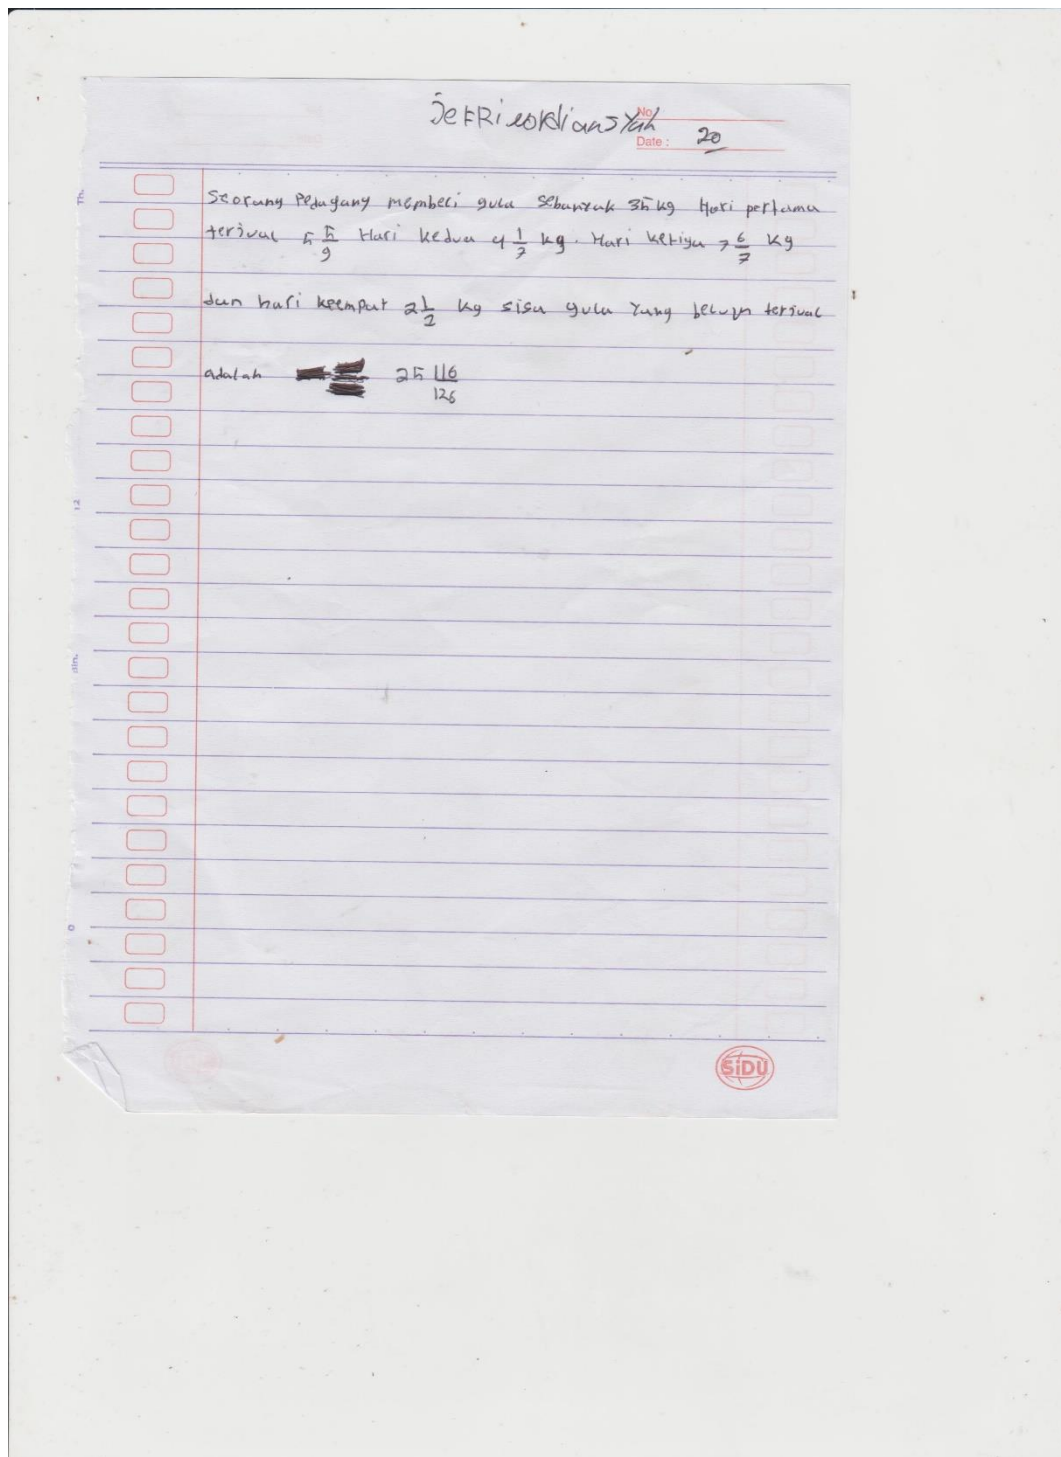 No
Date : 20
Seorang Pedagang memberi gula sebanyak 35 kg Hari pertama
terjual 5 5/9 Hari kedua 4 1/7 kg. Hari ketiga 7 6/7 kg
dan hari keempat 2 1/2 kg sisa gula Yang belum terjual
adalah 25 116/126
SiDU